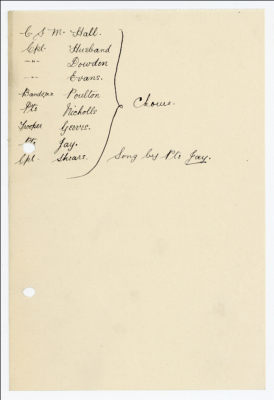 C S M. Hall.
Cpl. Husband
-"- Dowdon
-"- Evans.
Bandsman Poulton
Pte Nicholls
Trooper Geeves.
Pte Jay.
Cpl. Shears.
Chorus.
Song by Pte Jay.